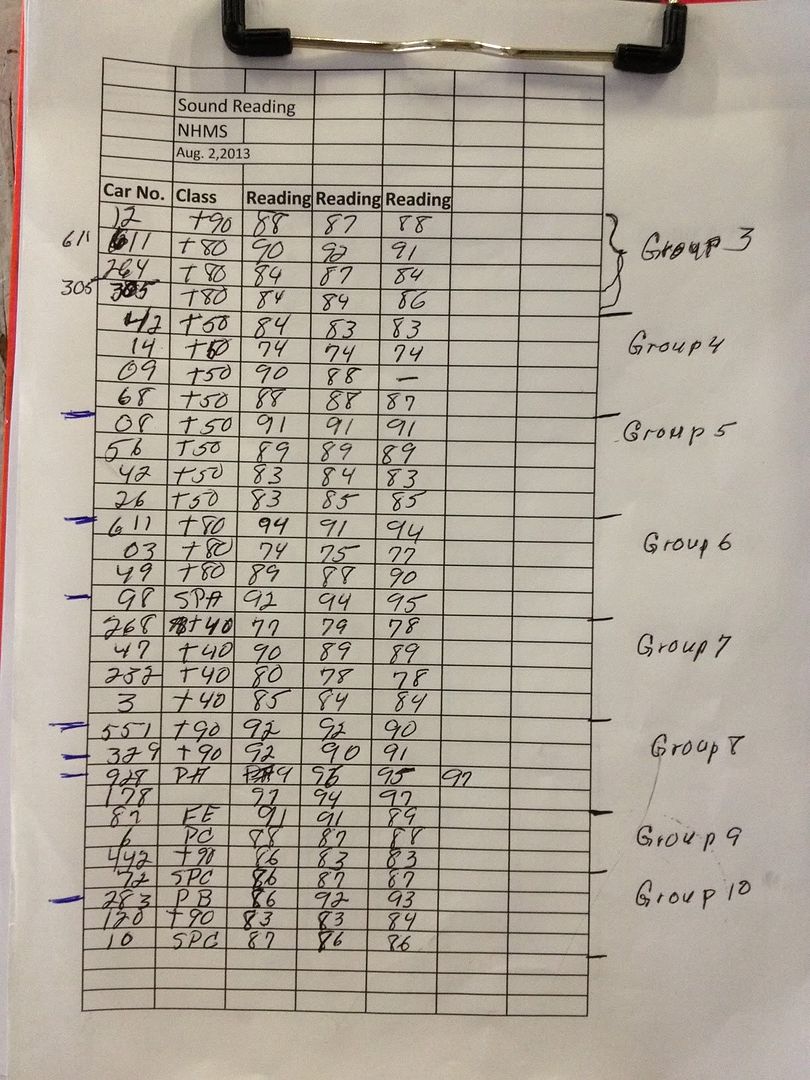 Sound Reading
NHMS
Aug. 2,2013
Car No. Class Reading Reading Reading
12 T90 88 87 88
611 611 T80 90 92 91 Group 3
264 T80 84 87 84
305 305 T80 84 84 86
42 T50 84 83 83
14 T50 74 74 74 Group 4
09 T50 90 88 —
68 T50 88 88 87
08 T50 91 91 91 Group 5
56 T50 89 89 89
42 T50 83 84 83
26 T50 83 85 85
611 T80 94 91 94
03 T80 74 75 77 Group 6
49 T80 89 88 90
98 SPA 92 94 95
268 T40 77 79 78
47 T40 90 89 89 Group 7
232 T40 80 78 78
3 T40 85 84 84
551 T90 92 92 90
329 T90 92 90 91 Group 8
928 PA 96 95 97
178 97 94 97
87 FE 91 91 89
6 PC 88 87 88 Group 9
442 T90 86 83 83
72 SPC 86 87 87
283 PB 86 92 93 Group 10
120 T90 83 83 84
10 SPC 87 86 86